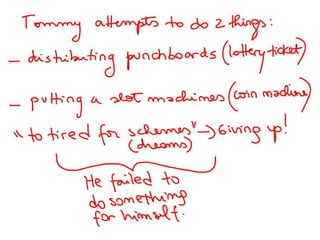 Tommy attempts to do 2 things:
- distributing punchboards (lottery ticket)
- putting a slot machines (coin machine)
"to tired for schemes" → Giving up!
(dreams)
He failed to
do something
for himself.